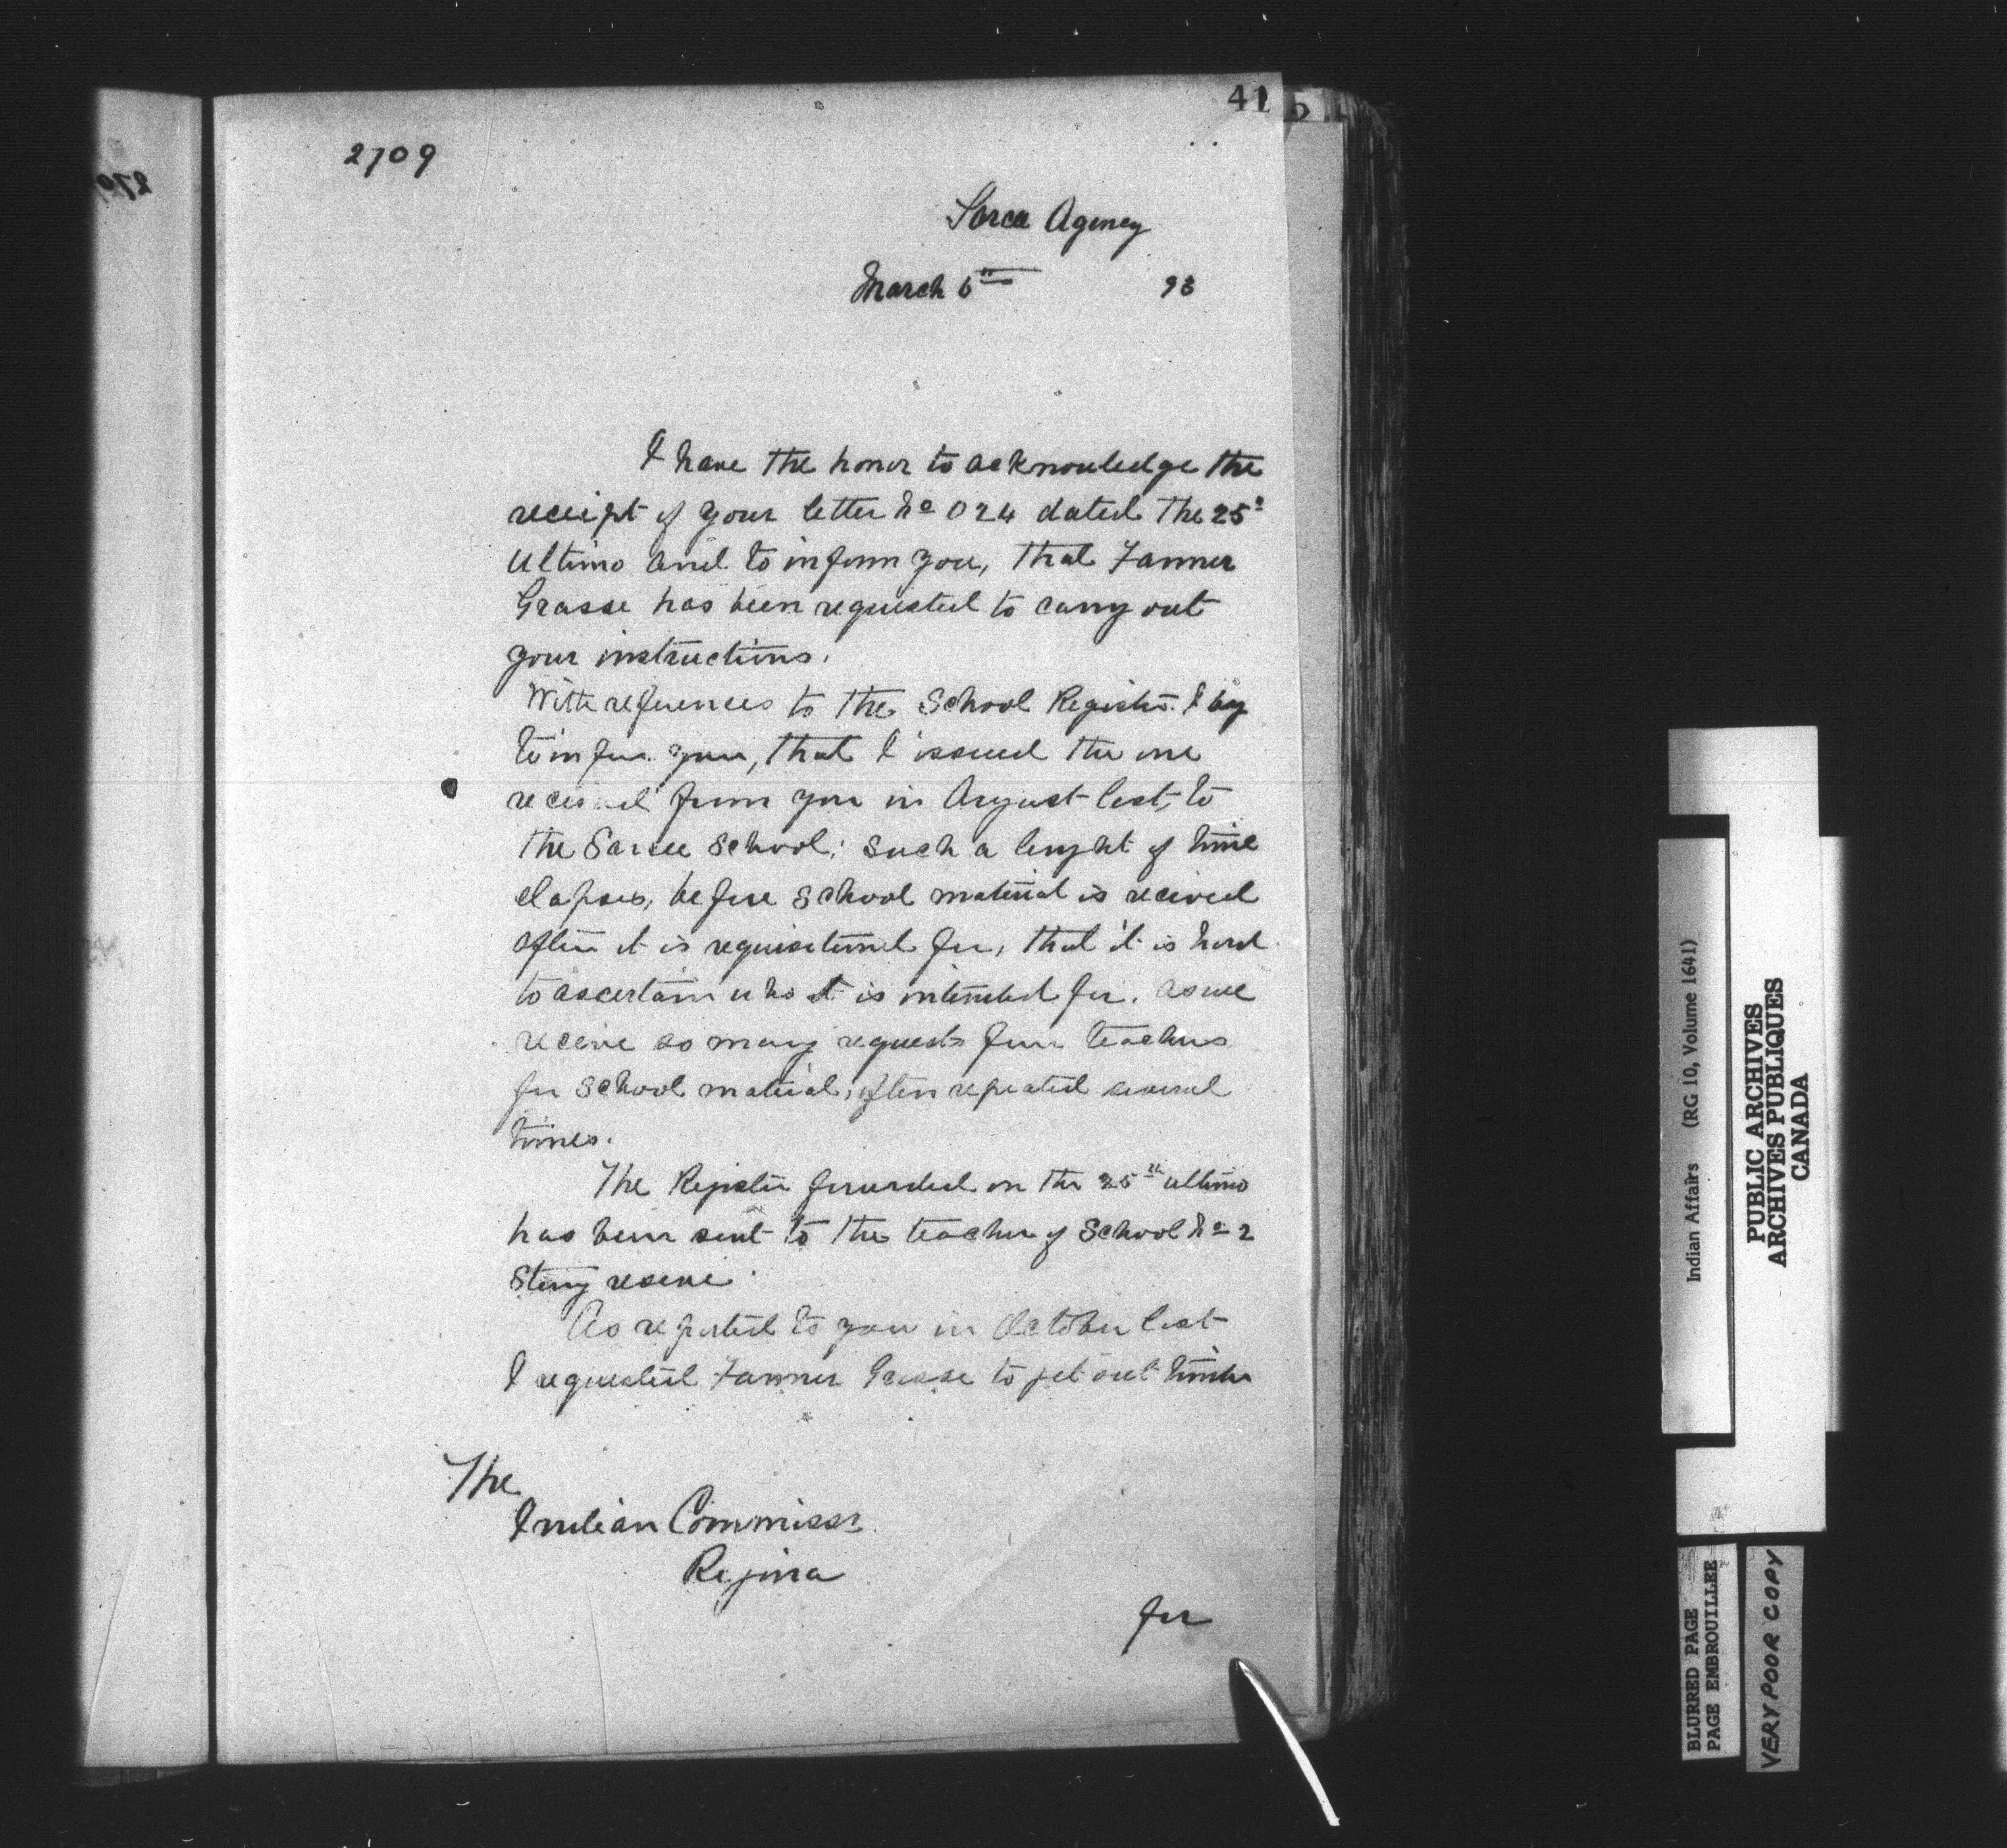 41
2709
Sarcee Agency
March 6th 93
I have the honor to acknowledge the
receipt of your letter No 024 dated the 25th
Ultimo and to inform you, that Farmer
Grasse has been requested to carry out
your instructions.
With references to the School Register I beg
to inform you, that I issued the one
received from you in August last, to
the Sarcee School; such a lenght of time
elapses, before school material is received
after it is requisitioned for, that it is hard
to ascertain who it is intended for, as we
receive so many requests from teachers
for school material, often repeated several
times.
The Register forwarded on the 25th ultimo
has been sent to the teacher of School No 2
Stony reserve.
As reported to you in October last
I requested Farmer Grasse to get out timber
The
Indian Commissr
Regina
for
Indian Affairs (RG 10, Volume 1641)
PUBLIC ARCHIVES
ARCHIVES PUBLIQUES
CANADA
BLURRED PAGE
PAGE EMBROUILLEE
VERY POOR COPY